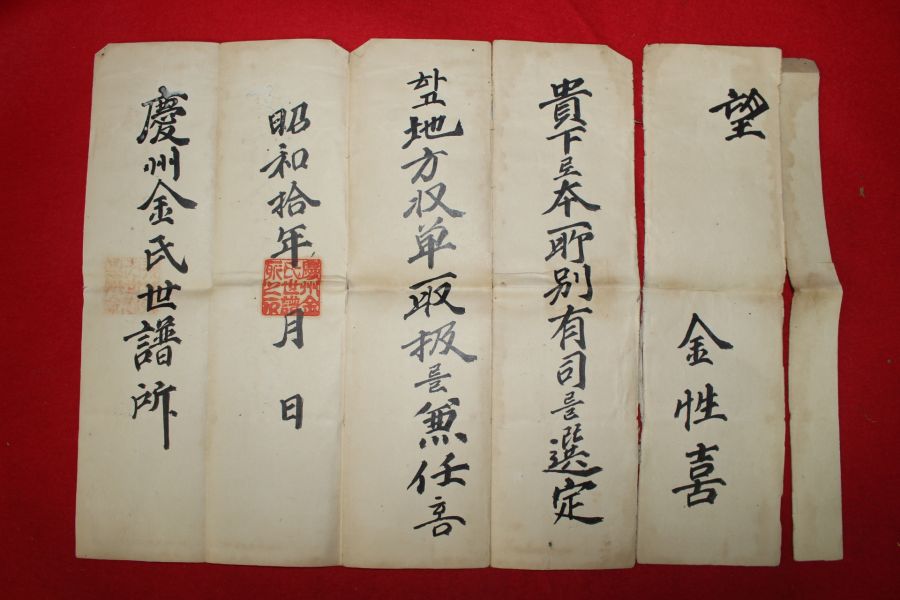 望
金性喜
貴下로本所別有司를選定
하고地方収单取扱를兼任홈
昭和拾年 月 日
慶州金氏世譜所
慶州金氏世譜所之印